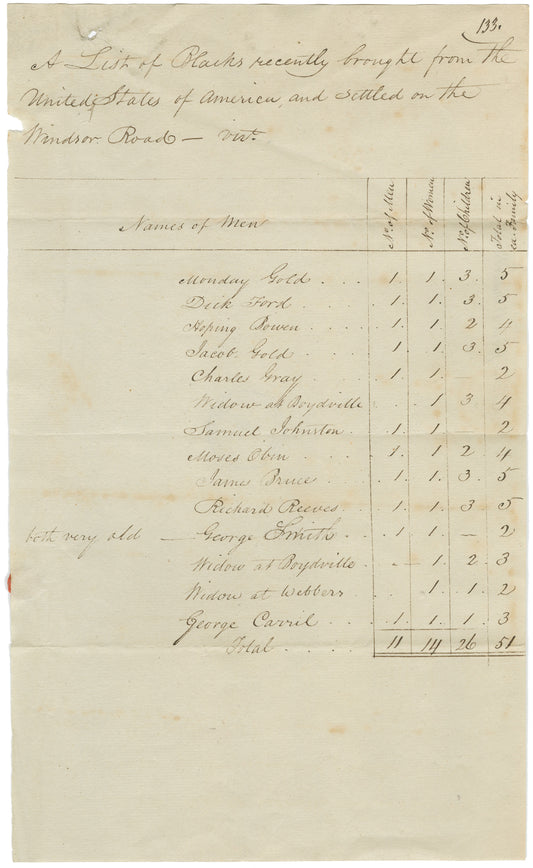 133.
A List of Blacks recently brought from the
United States of America, and settled on the
Windsor Road — vizt.
Names of Men No. of Men No. of Women No. of Children Total in ea. Family
Monday Gold . . . 1. 1. 3. 5
Dick Ford . . . 1. 1. 3. 5
Hoping Bowen . . . 1. 1. 2 4
Jacob Gold . . . 1 1. 3. 5
Charles Gray . . . 1. 1. — 2
Widow at Boydville . 1 3. 4
Samuel Johnston . 1 1. — 2
Moses Obin . . 1. 1 2 4
James Bruce . . . 1. 1. 3. 5
Richard Reeves . . . 1. 1. 3 5
both very old — George Smith . . 1. 1. — 2
Widow at Boydville . . — 1. 2. 3
Widow at Webbers . . 1. 1. 2
George Carril . . . 1. 1. 1. 3
Total . . . . 11 14 26 51